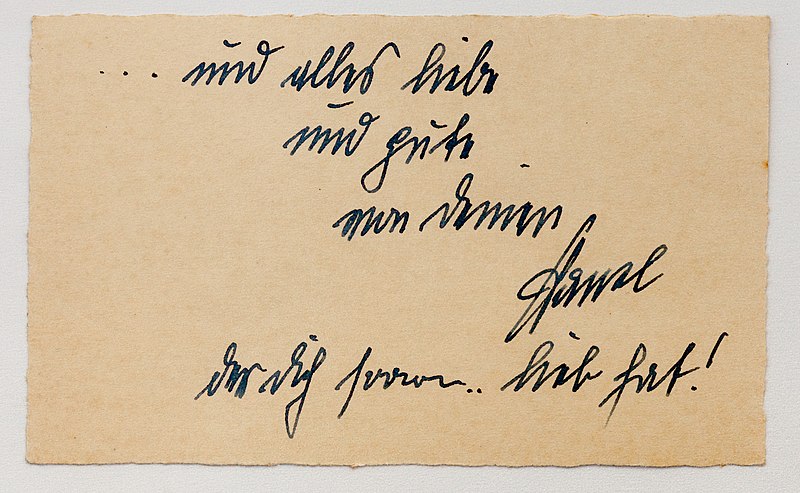 ... und alles liebe
und gute
von deinem
der dich sooooo.. lieb hat!